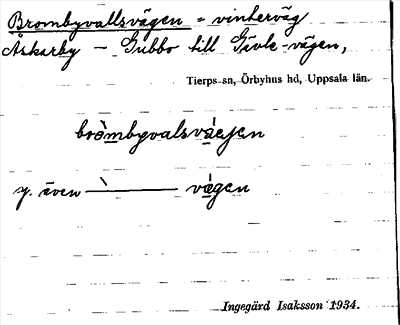 Brombyvallsvägen = vinterväg
Åskarby — Gubbo till Gävle-vägen,
Tierps sn, Örbyhus hd, Uppsala län.
bròmbyvalsvá̤ejen
y. även ——— vägen
Ingegärd Isaksson 1934.